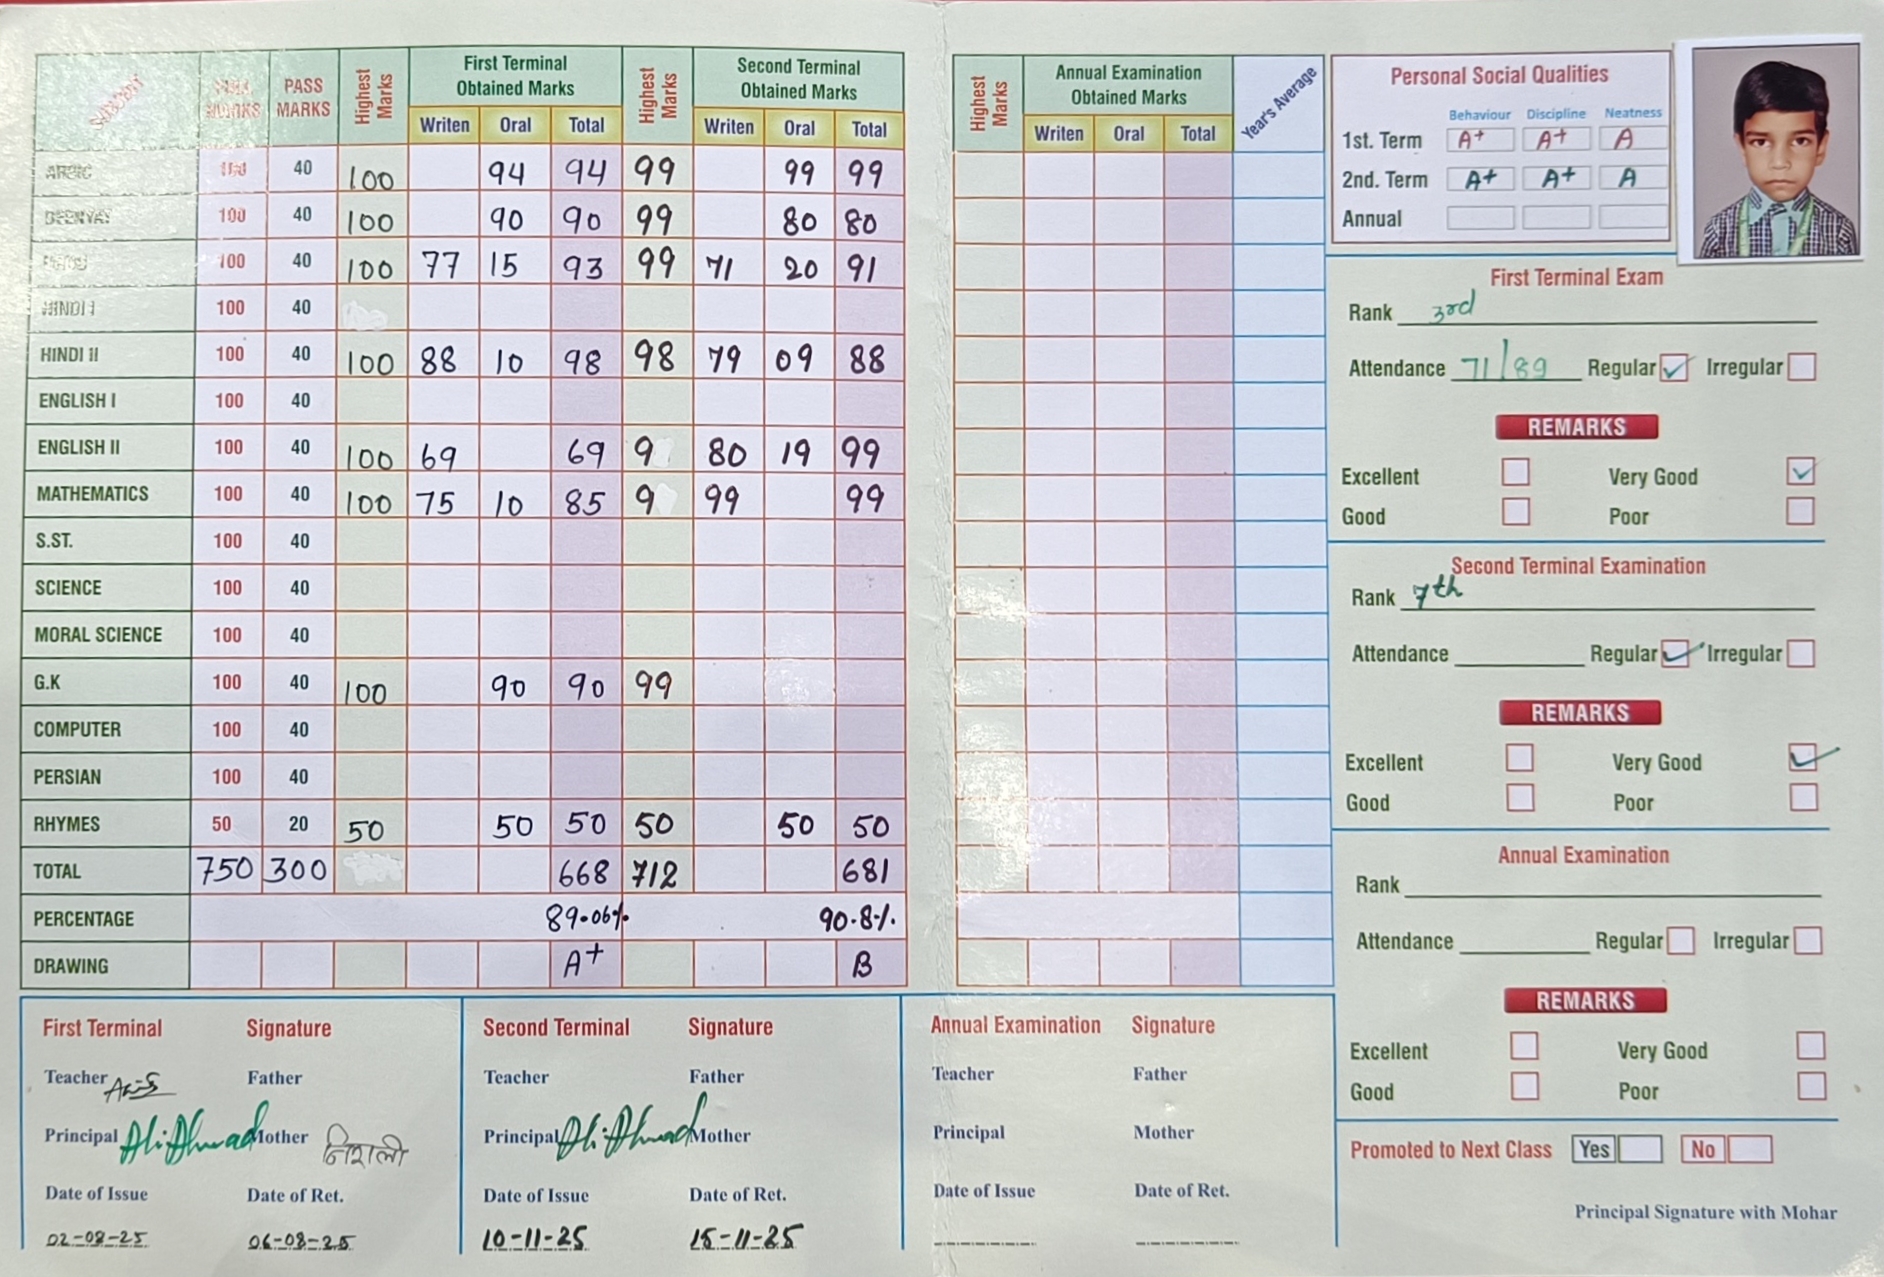 SUBJECT FULL MARKS PASS MARKS Highest Marks First Terminal Obtained Marks Highest Marks Second Terminal Obtained Marks
Writen Oral Total Writen Oral Total
ARBIC 100 40 100 94 94 99 99 99
DEENYAT 100 40 100 90 90 99 80 80
100 40 100 77 15 93 99 71 20 91
HINDI I 100 40
HINDI II 100 40 100 88 10 98 98 79 09 88
ENGLISH I 100 40
ENGLISH II 100 40 100 69 69 9 80 19 99
MATHEMATICS 100 40 100 75 10 85 9 99 99
S.ST. 100 40
SCIENCE 100 40
MORAL SCIENCE 100 40
G.K 100 40 100 90 90 99
COMPUTER 100 40
PERSIAN 100 40
RHYMES 50 20 50 50 50 50 50 50
TOTAL 750 300 668 712 681
PERCENTAGE 89.06% 90.8%
DRAWING A+ B
First Terminal Signature
Teacher Father
Principal Ali Ahmad Mother निशाली
Date of Issue Date of Ret.
02-08-25 06-08-25
Second Terminal Signature
Teacher Father
Principal Ali Ahmad Mother
Date of Issue Date of Ret.
10-11-25 15-11-25
Highest Marks Annual Examination Obtained Marks Year's Average
Writen Oral Total
Annual Examination Signature
Teacher Father
Principal Mother
Date of Issue Date of Ret.
Personal Social Qualities
Behaviour Discipline Neatness
1st. Term A+ A+ A
2nd. Term A+ A+ A
Annual
First Terminal Exam
Rank 3rd
Attendance 71/89 Regular Irregular
REMARKS
Excellent Very Good
Good Poor
Second Terminal Examination
Rank 7th
Attendance Regular Irregular
REMARKS
Excellent Very Good
Good Poor
Annual Examination
Rank
Attendance Regular Irregular
REMARKS
Excellent Very Good
Good Poor
Promoted to Next Class Yes No
Principal Signature with Mohar